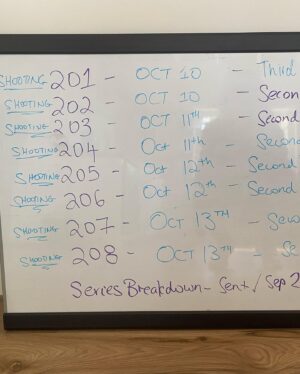 SHOOTING 201 - OCT 10 - Third
SHOOTING 202 - OCT 10 - Secon
SHOOTING 203 - OCT 11TH - Second
SHOOTING 204 - Oct 11th - Second
SHOOTING 205 - Oct 12th - Second
SHOOTING 206 - Oct 12th - Second
SHOOTING 207 - OCT 13TH - Seco
SHOOTING 208 - OCT 13TH - Se
Series Breakdown - Sent / Sep 2